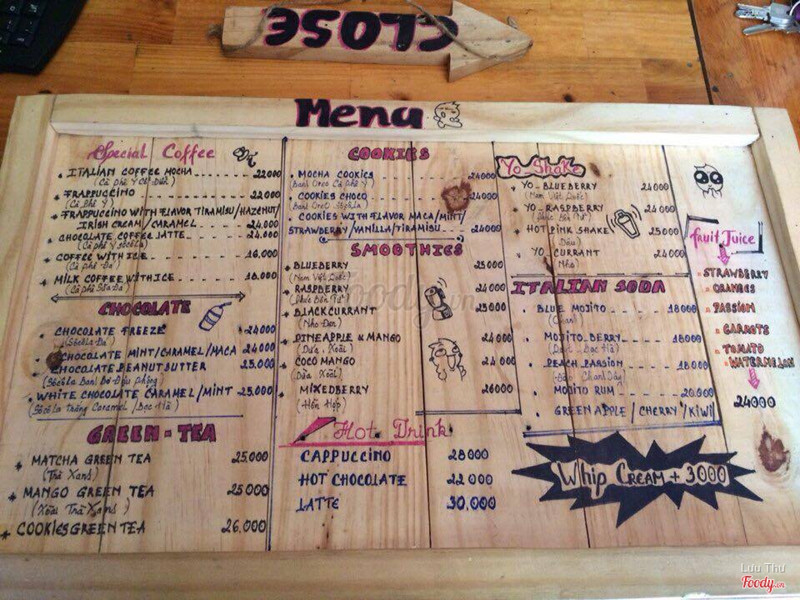 CLOSE
Menu
Special Coffee
ITALIAN COFFEE MOCHA 22000
FRAPPUCCINO 22.000
(Cà phê Ý)
FRAPPUCCINO WITH FLAVOR TIRAMISU/HAZENUT/
IRISH CREAM/CARAMEL 24.000
CHOCOLATE COFFEE LATTE 24.000
COFFEE WITH ICE 16.000
(Cà phê Đá)
MILK COFFEE WITH ICE 18.000
(Cà phê Sữa Đá)
CHOCOLATE
CHOCOLATE FREEZE 24000
CHOCOLATE MINT/CARAMEL/MACA 24000
CHOCOLATE PEANUT BUTTER 25.000
WHITE CHOCOLATE CARAMEL/MINT 25.000
GREEN-TEA
MATCHA GREEN TEA 25,000
(Trà Xanh)
MANGO GREEN TEA 25000
(Xoài Trà Xanh)
COOKIES GREEN TEA 26.000
COOKIES
MOCHA COOKIES 24000
COOKIES CHOCO 24000
COOKIES WITH FLAVOR MACA/MINT/
STRAWBERRY/VANILLA/TIRAMISU
SMOOTHIES
BLUEBERRY 25000
(Nam Việt Quốc)
RASPBERRY 24000
(Phúc Bồn Tử)
BLACKCURRANT 25000
(Nho Đen)
PINEAPPLE & MANGO 24000
(Dứa, Xoài)
COCO MANGO 24000
(Dừa, Xoài)
MIXEDBERRY 26000
(Hỗn Hợp)
Hot Drink
CAPPUCCINO 28000
HOT CHOCOLATE 22000
LATTE 30.000
Yo_Shake
YO_BLUEBERRY 24000
(Nam Việt Quốc)
YO_RASPBERRY 24000
(Phúc Bồn Tử)
HOT PINK SHAKE 25000
(Dâu)
YO_CURRANT 24000
(Nho)
ITALIAN SODA
BLUE MOJITO 18000
(Chanh)
MOJITO BERRY 18000
PEACH PASSION 18000
MOJITO RUM 20.000
GREEN APPLE / CHERRY / KIWI
Whip CREAM + 3000
fruit Juice
STRAWBERRY
ORANGE
PASSION
CARROTE
TOMATO
WATERMELON
24000
Foody.vn
Luu Thu
Foody.vn